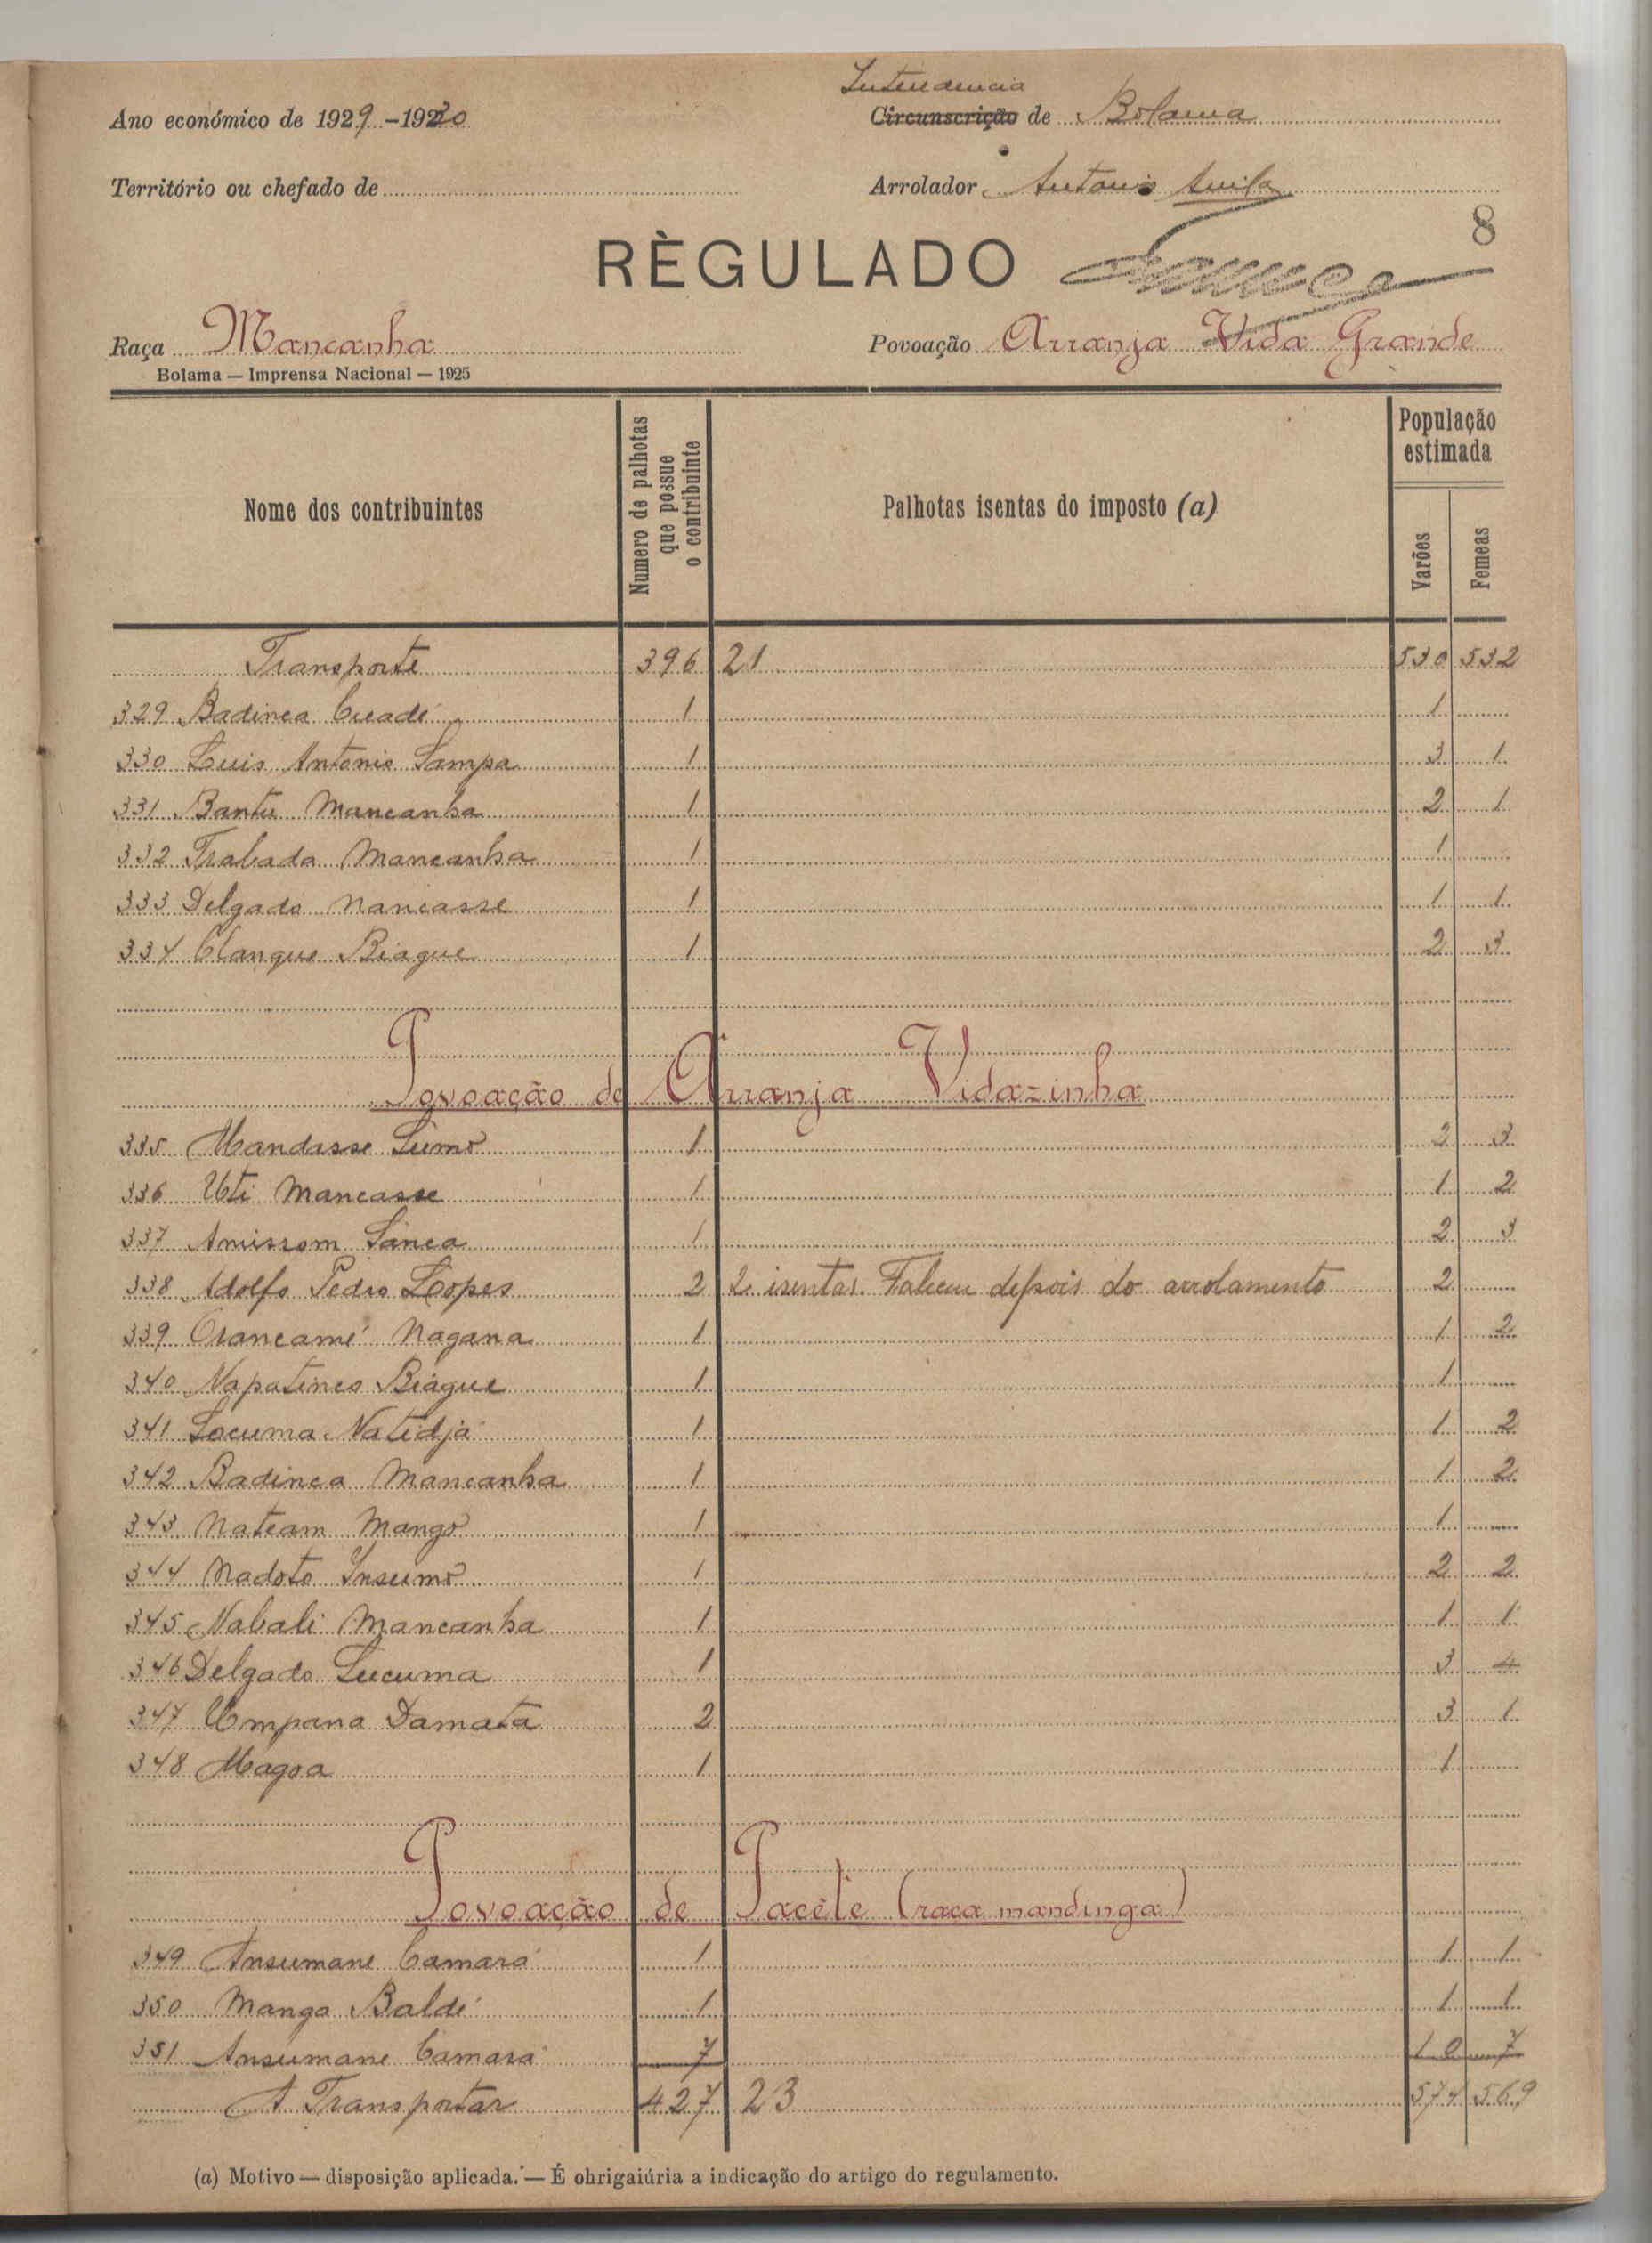 Intendencia
Ano económico de 1929-1930 Circunscrição de Bolama
Território ou chefado de Arrolador Antonio Avila
8
RÈGULADO
Raça Mancanha Povoação Arranja Vida Grande
Bolama — Imprensa Nacional — 1925
Nome dos contribuintes Numero de palhotas que possue o contribuinte Palhotas isentas do imposto (a) População estimada Varões Femeas
Transporte 396 21 530 532
329 Badinca Cuadé 1 1
330 Luis Antonio Sampa 1 3 1
331 Bantu Mancanha 1 2 1
332 Trabada Mancanha 1 1
333 Delgado Nancasse 1 1 1
334 Clangue Biague 1 2 3
Povoação de Arranja Vidazinha
335 Mandasse Sumo 1 2 3
336 Uti Mancasse 1 1 2
337 Amissom Sanca 1 2 3
338 Adolfo Pedro Lopes 2 2 isentas. Faleceu depois do arrolamento 2
339 Orancamé Nagana 1 1 2
340 Napatinco Biague 1 1
341 Locuma Natidjá 1 1 2
342 Badinca Mancanha 1 1 2
343 Nateam Mango 1 1
344 Nadoto Insumo 1 2 2
345 Nabali Mancanha 1 1 1
346 Delgado Lucuma 1 3 4
347 Umpana Damata 2 3 1
348 Magoa 1 1
Povoação de Pacéte (raca mandinga)
349 Ansumane Camará 1 1 1
350 Manga Baldé 1 1 1
351 Ansumane Camará 7 10 7
A Transportar 427 23 574 569
(a) Motivo — disposição aplicada. — É ohrigaiúria a indicação do artigo do regulamento.